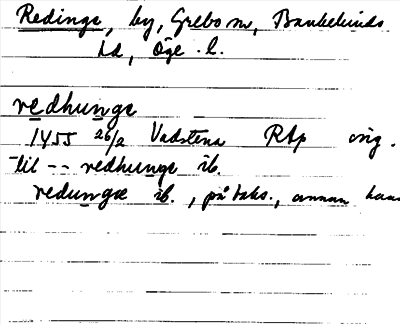 Redinge, by, Grebo sn, Bankekinds
hd, Ög. l.
redhunge
1455 26/2 Vadstena RAp orig.
til -- redhunge ib.
redungæ ib., på baks., annan hand